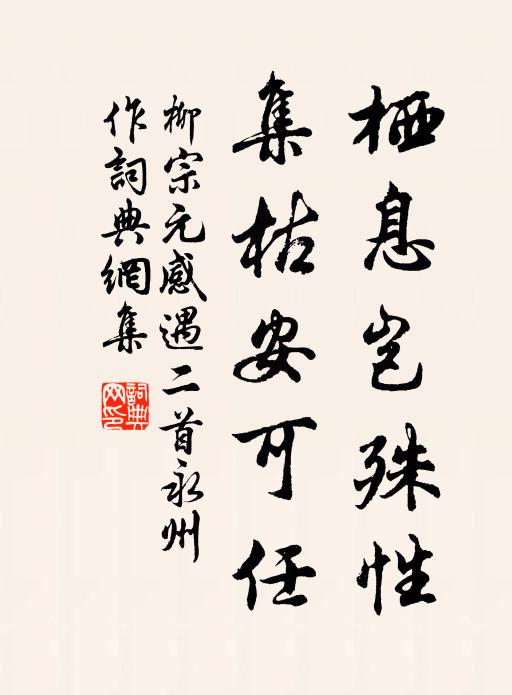 栖息岂殊性
集枯安可任
柳宗元感遇二首永州
作詞典網集
詞典
网印